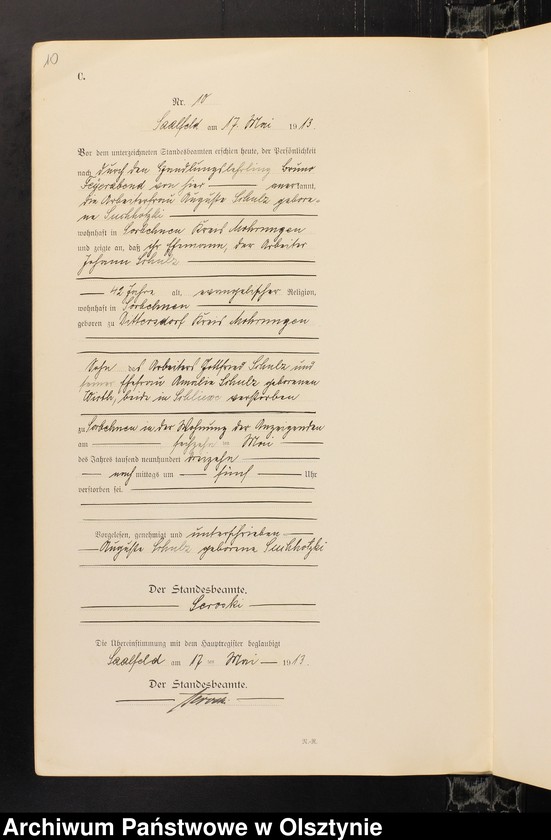 10
C.
Nr. 10
Saalfeld am 17. Mai 1913.
Vor dem unterzeichneten Standesbeamten erschien heute, der Persönlichkeit
nach durch den Handlungslehrling Bruno
Feyerabend von hier anerkannt,
die Arbeiterfrau Auguste Schulz gebore-
ne Suchhotzki
wohnhaft in Sorbehnen Kreis Mohrungen
und zeigte an, daß ihr Ehemann, der Arbeiter
Johann Schulz
42 Jahre alt, evangelischer Religion,
wohnhaft in Sorbehnen
geboren zu Kreis Mohrungen
Sohn des Arbeiters Gottfried Schulz und
seiner Ehefrau Amalie Schulz geborenen
beide in verstorben
zu Sorbehnen in der Wohnung der Anzeigenden
am sechzehn ten Mai
des Jahres tausend neunhundert dreizehn
nach mittags um fünf Uhr
verstorben sei.
Vorgelesen, genehmigt und unterschrieben
Auguste Schulz geborene Suchhotzki
Der Standesbeamte.
Die Übereinstimmung mit dem Hauptregister beglaubigt
Saalfeld am 17 ten Mai 1913.
Der Standesbeamte.
R.-R.
Archiwum Państwowe w Olsztynie